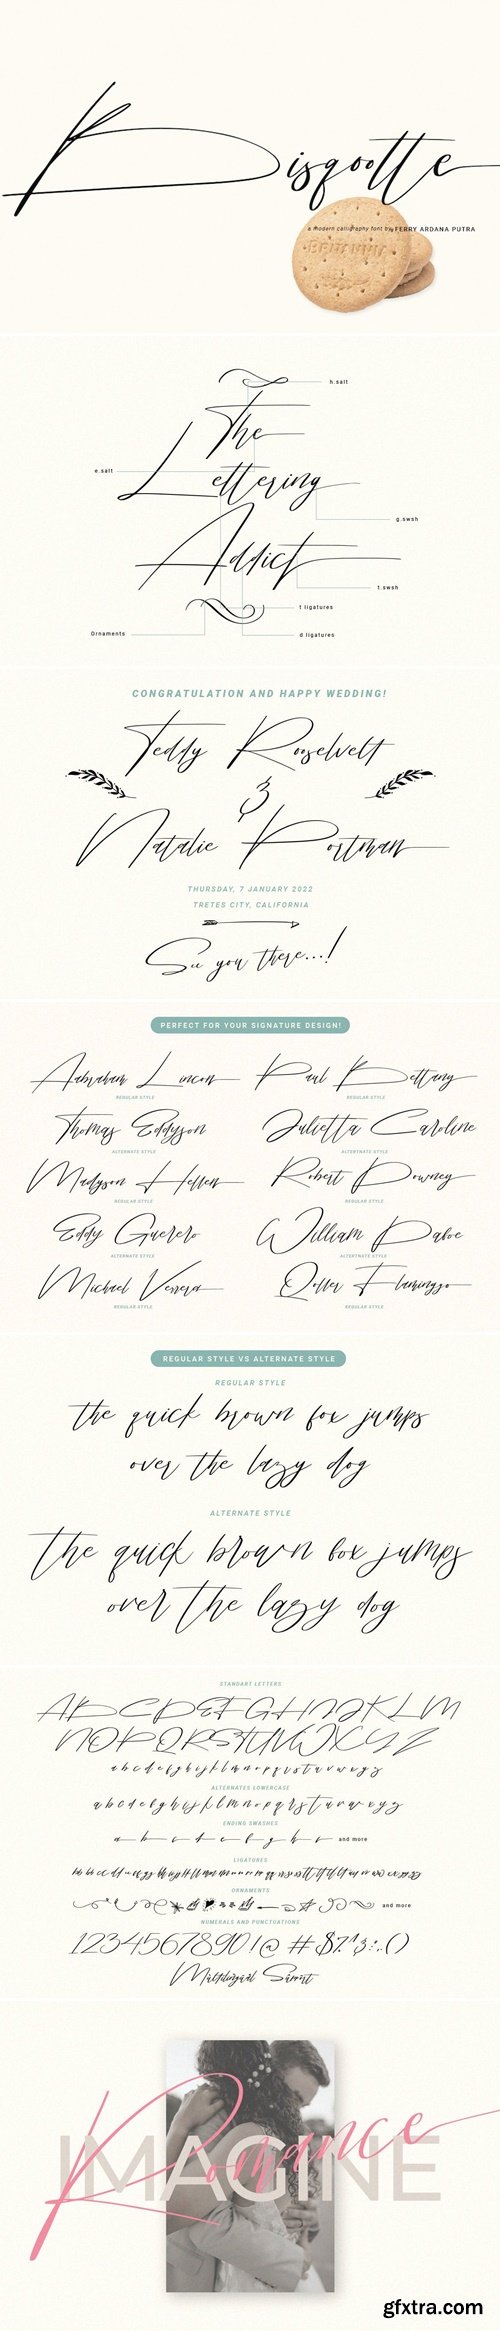 Bisqootte
a modern calligraphy font by FERRY ARDANA PUTRA
BRITANNIA
h.salt
The
e.salt
Lettering
g.swsh
Addict
t.swsh
t ligatures
Ornaments
d ligatures
CONGRATULATION AND HAPPY WEDDING!
Teddy Rooselvelt
&
Natalie Portman
THURSDAY, 7 JANUARY 2022
TRETES CITY, CALIFORNIA
See you there...!
PERFECT FOR YOUR SIGNATURE DESIGN!
Aabraham Lincon Paul Bettany
REGULAR STYLE REGULAR STYLE
Thomas Eddyson Julietta Caroline
ALTERNATE STYLE ALTERTNATE STYLE
Madyson Hellen Robert Downey
REGULAR STYLE REGULAR STYLE
Eddy Guerero William Dafoe
ALTERNATE STYLE ALTERTNATE STYLE
Michael Venera Qoller Flaminggo
REGULAR STYLE REGULAR STYLE
REGULAR STYLE VS ALTERNATE STYLE
REGULAR STYLE
the quick brown fox jumps
over the lazy dog
ALTERNATE STYLE
the quick brown fox jumps
over the lazy dog
STANDART LETTERS
ABCDEFGHIJKLM
NOPQRSTUVWXYZ
abcdefghijklmnopqrstuvwxyz
ALTERNATES LOWERCASE
abcdefghijklmnopqrstuvwxyz
ENDING SWASHES
a b c d e f g h i and more
LIGATURES
ORNAMENTS
and more
NUMERALS AND PUNCTUATIONS
1234567890!@#$%^&:,.()
Multilingual Support
IMAGINE
Romance
gfxtra.com